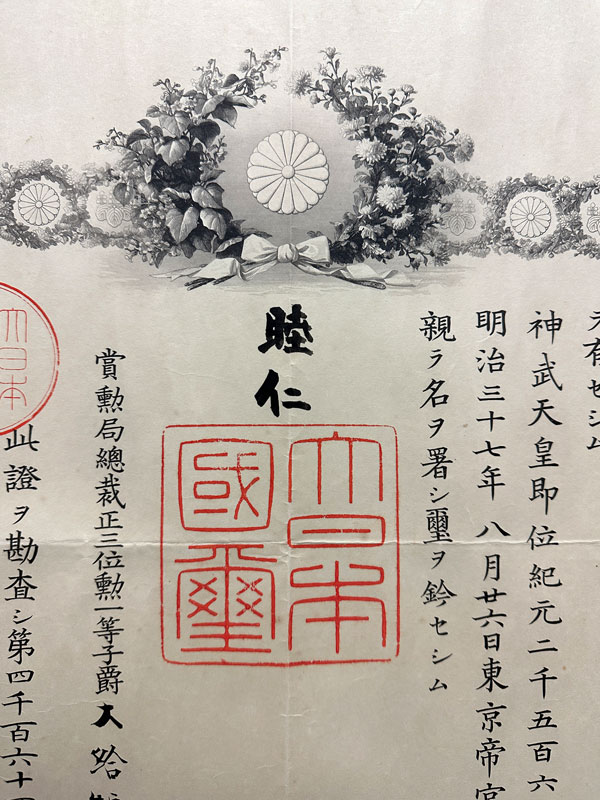 有セシム
神武天皇即位紀元二千五百六
明治三十七年八月廿六日東京帝宮
親ラ名ヲ署シ璽ヲ鈐セシム
睦仁
大日本國璽
賞勲局總裁正三位勲一等子爵大給
大日本
此證ヲ勘査シ第四千百六十